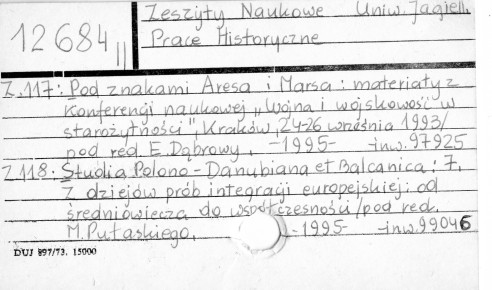 Zeszyty Naukowe Uniw. Jagiell.
12 684 II
Prace Historyczne
Z.117: Pod znakami Aresa i Marsa : materiały z
Konferencji naukowej „Wojna i wojskowość w
starożytności", Kraków, 24-26 września 1993/
pod red. E. Dąbrowy. -1995- -inw. 97925
Z.118: Studia Polono-Danubiana et Balcanica : 7,
Z dziejów prób integracji europejskiej : od
średniowiecza do współczesności / pod red.
M. Pułaskiego. -1995- -inw. 99046
DUJ 897/73. 15000